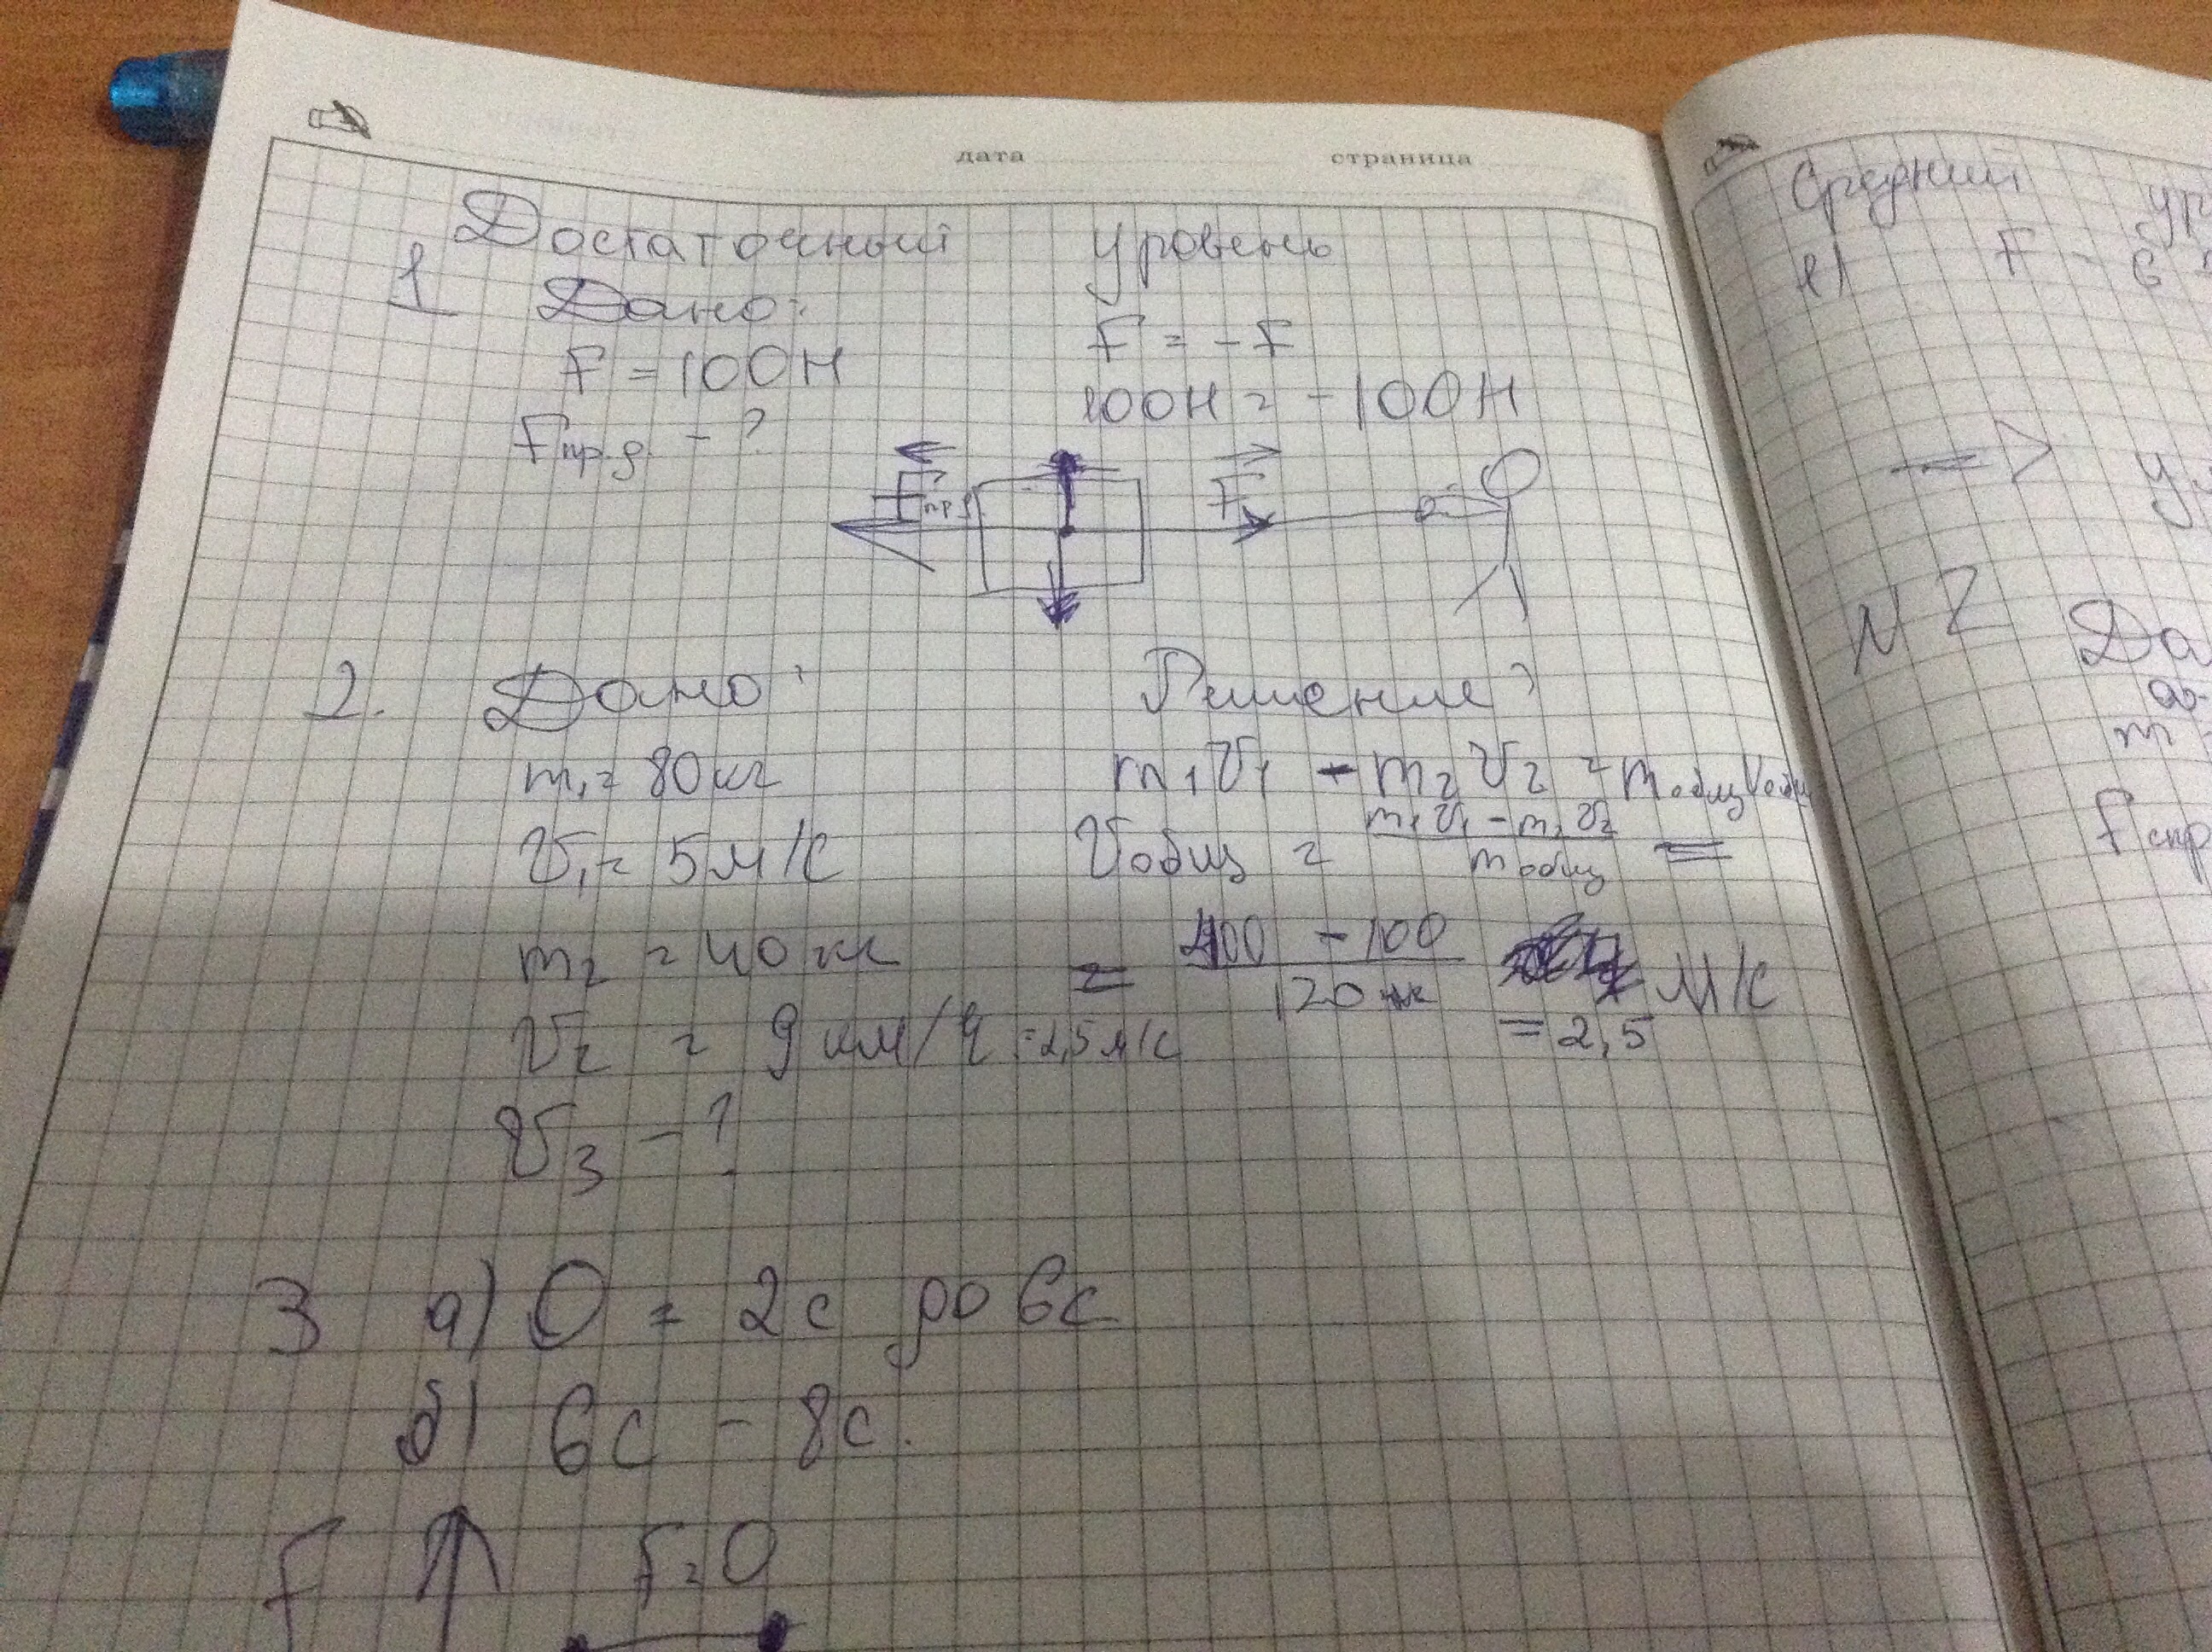 дата страница
Достаточный уровень
1 Дано:
F = 100Н
Fпр.д. - ?
F = -F
100Н = -100Н
Fпр.д. F
2. Дано:
m₁ = 80 кг
V₁ = 5 м/с
m₂ = 40 кг
V₂ = 9 км/ч = 2,5 м/с
V₃ - ?
Решение:
m₁V₁ - m₂V₂ = mобщVобщ
Vобщ = (m₁V₁ - m₂V₂)/mобщ =
= (400 - 100)/120 м/с
= 2,5
3 а) 0 = 2с до 6с
б) 6с - 8с.
F F=0
Средний ур
F - 6
N 2
Да
m
Fспр